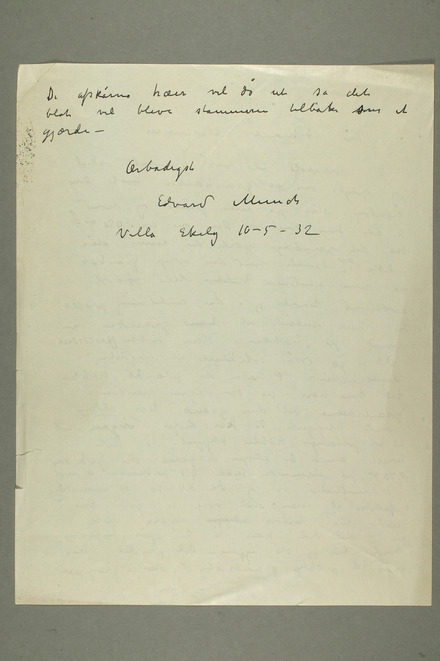 De afskårne trær vil dø ut så det
blot vil blive stammerne tilbake som et
gjærde –
Ærbødigst
Edvard Munch
Villa Ekely 10-5-32